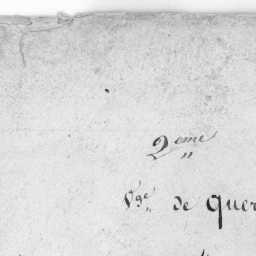 2eme
"
Vge de Quer